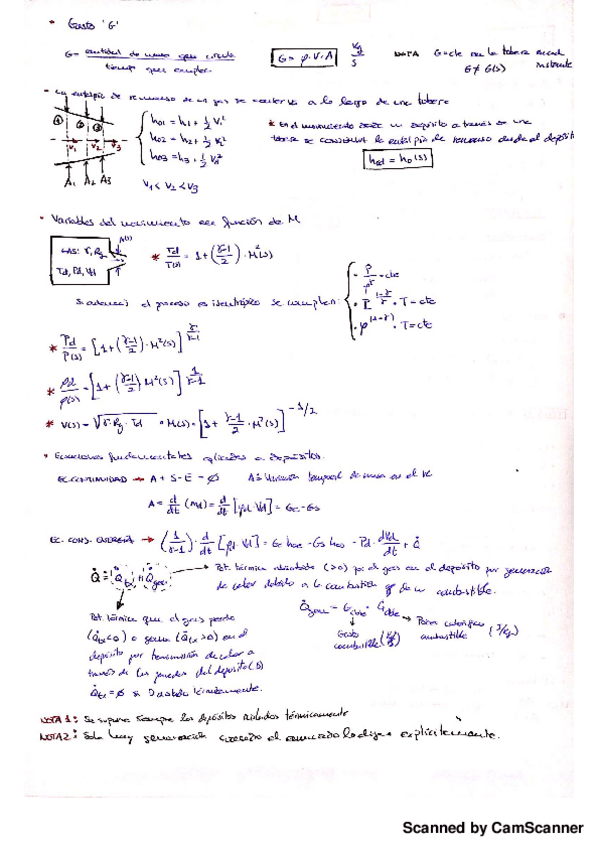 * Gasto 'G'
G = cantidad de masa que circula / tiempo que emplea
G = ρ·V·A kg/s
NOTA G = cte en la tobera
G ≠ G(s)
- La entalpía de remanso de un gas se conserva a lo largo de una tobera
① ② ③
V1 V2 V3
A1 A2 A3
h01 = h1 + 1/2 V1²
h02 = h2 + 1/2 V2²
h03 = h3 + 1/2 V3²
V1 < V2 < V3
* En el movimiento desde un depósito a través de una
tobera se conserva la entalpía de remanso desde el depósito
hod = ho(s)
• Variables del movimiento en función de M
GAS: γ, Rg
Td, Pd, Vd
A(s)
* Td/T(s) = 1 + (γ-1/2)·M²(s)
Si además el proceso es isentrópico se cumplen:
• P/ρ^γ = cte
• P^(1-γ/γ)·T = cte
• ρ^(1-γ)·T = cte
* Pd/P(s) = [1 + (γ-1/2)·M²(s)]^γ/γ-1
* ρd/ρ(s) = [1 + (γ-1/2)·M²(s)]^1/γ-1
* V(s) = √γ·Rg·Td · M(s)·[1 + γ-1/2·M²(s)]^-1/2
• Ecuaciones fundamentales aplicadas a depósitos.
EC. CONTINUIDAD → A + S - E = ∅ A ≡ Variación temporal de masa en el VC
A = d/dt (md) = d/dt [ρd·Vd] = Ge - Gs
EC. CONS. ENERGÍA → (1/γ-1)·d/dt [Pd·Vd] = Ge hoe - Gs hos - Pd·dVd/dt + Q̇
Q̇ = Q̇tr + Q̇gen
→ Pot. térmica absorbida (>0) por el gas en el depósito por generación
de calor debido a la combustión de un combustible.
Q̇gen = Gcble · Lcble
Gasto combustible (kg/s)
Poder calorífico combustible (J/kg)
Pot. térmica que el gas pierde
(Q̇tr<0) o gana (Q̇tr>0) en el
depósito por transmisión de calor a
través de las paredes del depósito (D)
Q̇tr = ∅ si D aislado térmicamente.
NOTA 1: Se supone siempre los depósitos aislados térmicamente
NOTA 2: Solo hay generación cuando el enunciado lo diga explícitamente.
Scanned by CamScanner